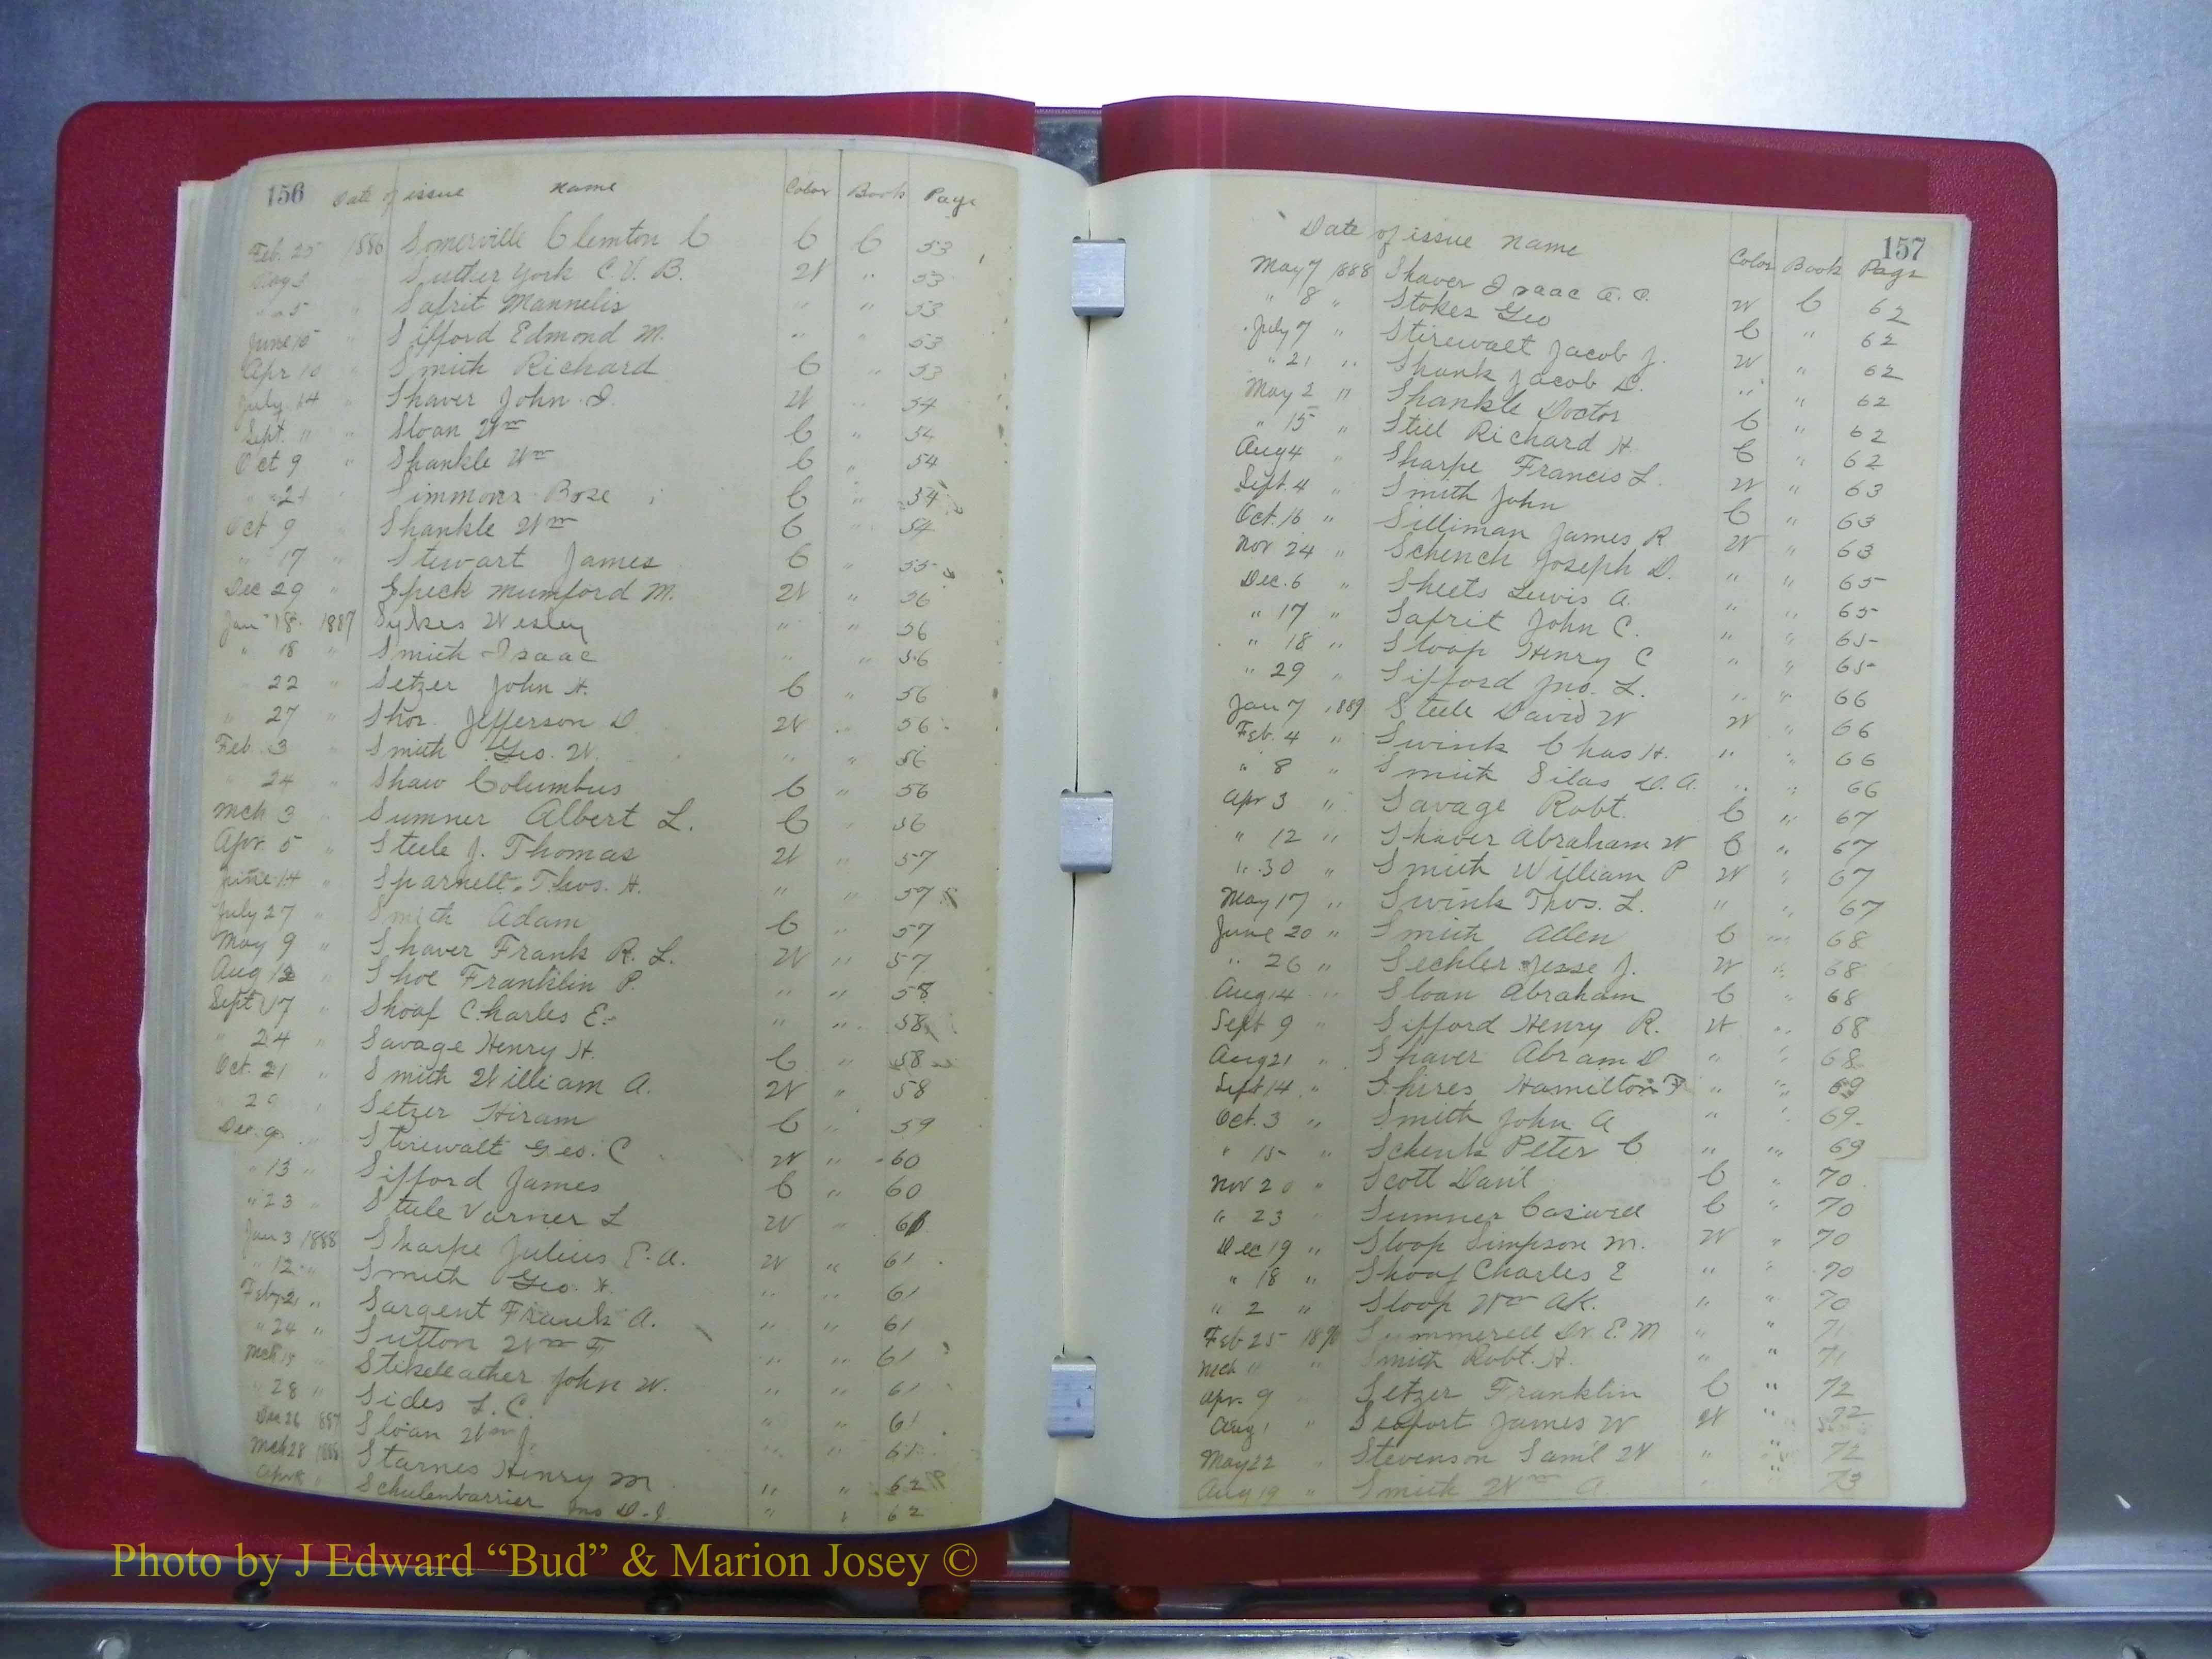 156 Date of issue Name Color Book Page
Feb. 25 1886 Somerville Clemton C C C 53
May 3 Suther York C. V. B. W " 53
" 5 " Safrit Mannelis " " 53
June 15 " Sifford Edmond M. " " 53
Apr 10 " Smith Richard C " 53
July 14 " Shaver John D. W " 54
Sept. " " Sloan Wm C " 54
Oct 9 " Shankle Wm C " 54
" 21 " Simmons Bose C " 54
Oct 9 " Shankle Wm C " 54
" 17 " Stewart James C " 55
Dec 29 " Speck Mumford M. W " 56
Jan 18 1887 Sykes Wesley " " 56
" 18 " Smith Isaac " " 56
22 " Setzer John H. C " 56
" 27 " Shor. Jefferson D W " 56
Feb. 3 " Smith Geo. W. " " 56
" 24 " Shaw Columbus C " 56
Mch 3 " Sumner Albert L. C " 56
Apr. 5 " Steele J. Thomas W " 57
June 14 " Sparnell Thos. H. " " 57
July 27 " Smith Adam C " 57
May 9 " Shaver Frank R. L. W " 57
Aug 12 " Shoe Franklin P. " " 58
Sept 17 " Shoaf Charles E. " " 58
" 24 " Savage Henry H. C " 58
Oct. 21 " Smith William A. W " 58
" 29 " Setzer Hiram C " 59
Dec. 9 " Stirewalt Geo. C W " 60
" 13 " Sifford James C " 60
" 23 " Steele Varner L W " 61
Jan 3 1888 Sharpe Julius E. A. W " 61
" 12 " Smith Geo. H. " " 61
Feby 21 " Sargent Frank A. " " 61
" 24 " Sutton Wm F " " 61
Mch 15 " Stikeleather John W. " " 61
" 28 " Sides L. C. " " 61
Dec 26 1887 Sloan Wm J. " " 61
Mch 28 1888 Starnes Henry M " " 62
Apr " Schulenbarrier Jno D. I. " " 62
Date of issue Name Color Book Page 157
May 7 1888 Shaver Isaac A. A. W C 62
" 8 " Stokes Geo C " 62
July 7 " Stirewalt Jacob J. W " 62
" 21 " Shank Jacob D. " " 62
May 2 " Shankle Doctor C " 62
" 15 " Steel Richard H. C " 62
Aug 4 " Sharpe Francis L. W " 63
Sept. 4 " Smith John C " 63
Oct. 16 " Silliman James R W " 63
Nov 24 " Schench Joseph D. " " 65
Dec. 6 " Sheets Lewis A. " " 65
" 17 " Safrit John C. " " 65
" 18 " Sloop Henry C " " 65
" 29 " Sifford Jno. L. " " 66
Jan 7 1889 Steele David W W " 66
Feb. 4 " Swink Chas H. " " 66
" 8 " Smith Silas D. A. " " 66
Apr 3 " Savage Robt. C " 67
" 12 " Shaver Abraham W C " 67
" 30 " Smith William P W " 67
May 17 " Swink Thos. L. " " 67
June 20 " Smith Allen C " 68
" 26 " Sechler Jesse J. W " 68
Aug 14 " Sloan Abraham C " 68
Sept 9 " Sifford Henry R. W " 68
Aug 21 " Shaver Abram D " " 68
Sept 14 " Shires Hamilton F " " 69
Oct. 3 " Smith John A " " 69
" 15 " Schenk Peter C " " 69
Nov 20 " Scott Dan'l C " 70
" 23 " Sumner Caswell C " 70
Dec 19 " Sloop Simpson M. W " 70
" 18 " Shoaf Charles E " " 70
" 2 " Sloop Wm AK. " " 70
Feb 25 1890 Summerell Dr. E. M " " 71
Mch 11 " Smith Robt. H. " " 71
Apr. 9 Setzer Franklin C " 72
Aug 1 " Seafort James W W " 72
May 22 " Stevenson Saml W " " 72
Aug 19 " Smith Wm A " " 73
Photo by J Edward “Bud” & Marion Josey ©